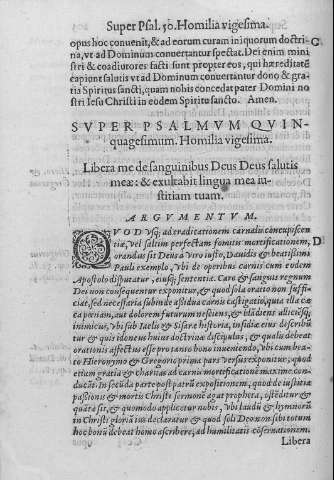 Super Psal. 50. Homilia vigesima.
opus hoc conuenit, & ad eorum curam in quorum doctri-
na, vt ad Dominum conuertantur spectat. Dei enim mini
stri & coadiutores facti sunt propter eos, qui hæreditatē
capiunt salutis vt ad Dominum conuertantur dono & gra
tia Spiritus sancti, quam nobis concedat pater Domini no
stri Iesu Christi in eodem Spiritu sancto. Amen.
C
SVPER PSALMVM QVIN-
quagesimum. Homilia vigesima.
Libera me de sanguinibus Deus Deus salutis
meæ: & exultabit lingua mea iu-
stitiam tuam.
ARGVMENTVM.
QVOD vsq; ad eradicationem carnalis concupiscen
tiæ, vel saltim perfectam fomitis mortificationem,
orandus sit Deus a viro iusto, Dauidis & beatissimi
Pauli exemplo, vbi de operibus carnis cum eodem
D
Apostolo disputatur, eiusq; sententia. Caro & sanguis regnum
Dei non consequentur exponitur, & quod sola oratio non suffi
ciat, sed necessaria subinde assidua carnis castigatio, qua illa cæ
ca pœnam, aut dolorem futurum nesciens, & blādiens alliciēsq;
inimicus, vbi sub Iaelis & Sisaræ historia, insidiæ eius describū
tur & quis idoneus huius doctrinæ discipulus, & qualis debeat
orationis affectus esse pro tanto bono inueniendo, vbi cum bea-
to Hieronymo & Gregorio prima pars versus exponitur, quod
etiam gratia & charitas ad carnis mortificationē maxime con
ducāt. In secūda parte post patrū expositionem, quod de iustitia
passionis & mortis Christi sermonē agat propheta, ostēditur &
quāta sit, & quomodo applicetur nobis, vbi laudū & hymnorū
in Christi gloriā ius declaratur & quod soli Deo non sibi totum
hoc bonū debeat homo ascribere, ad humilitatis cōseruationem.
Libera